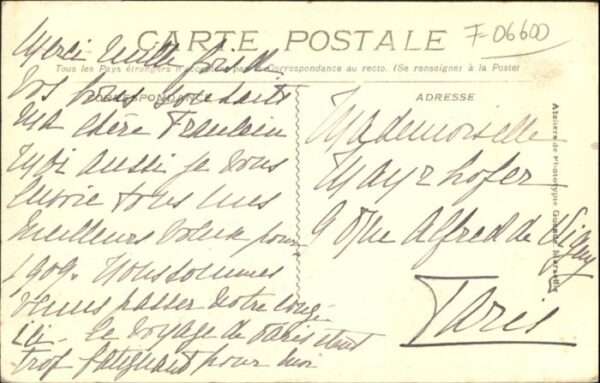 CARTE POSTALE
F-06600
Tous les Pays étrangers n'acceptent pas la Correspondance au recto. (Se renseigner à la Poste)
CORRESPONDANCE
Merci mille fois de
vos bons souhaits
ma chère Fraulein
Moi aussi je vous
envoie tous mes
meilleurs voeux pour
1909. Nous sommes
venus passer notre congé
ici. Le voyage de Paris était
trop fatiguant pour moi
ADRESSE
Mademoiselle
Mayrhofer
9 Rue Alfred de Vigny
Paris
Ateliers de Phototypie Marseille